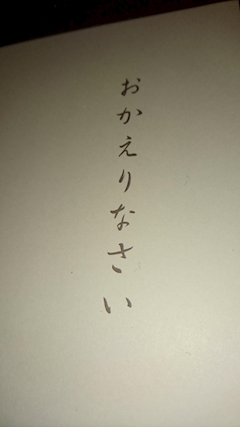 おかえりなさい